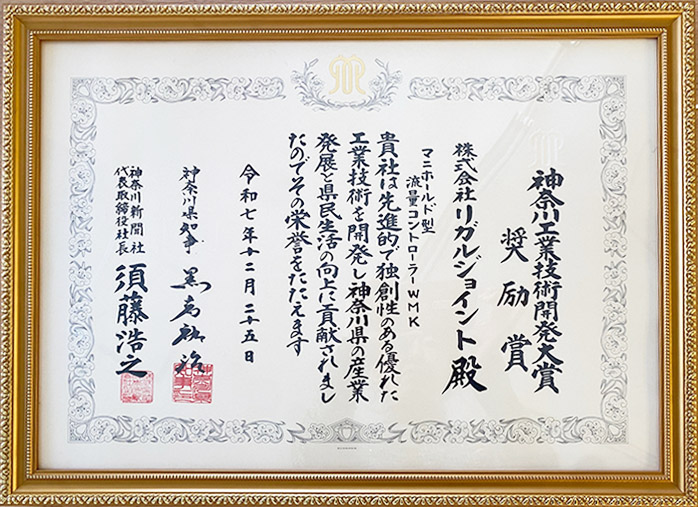 神奈川工業技術開発大賞
奨励賞
株式会社リガルジョイント殿
マニホールド型
流量コントローラーWMK
貴社は先進的で独創性のある優れた
工業技術を開発し神奈川県の産業
発展と県民生活の向上に貢献されまし
たのでその栄誉をたたえます
令和七年十二月二十五日
神奈川県知事 黒岩祐治
神奈川新聞社
代表取締役社長 須藤浩之